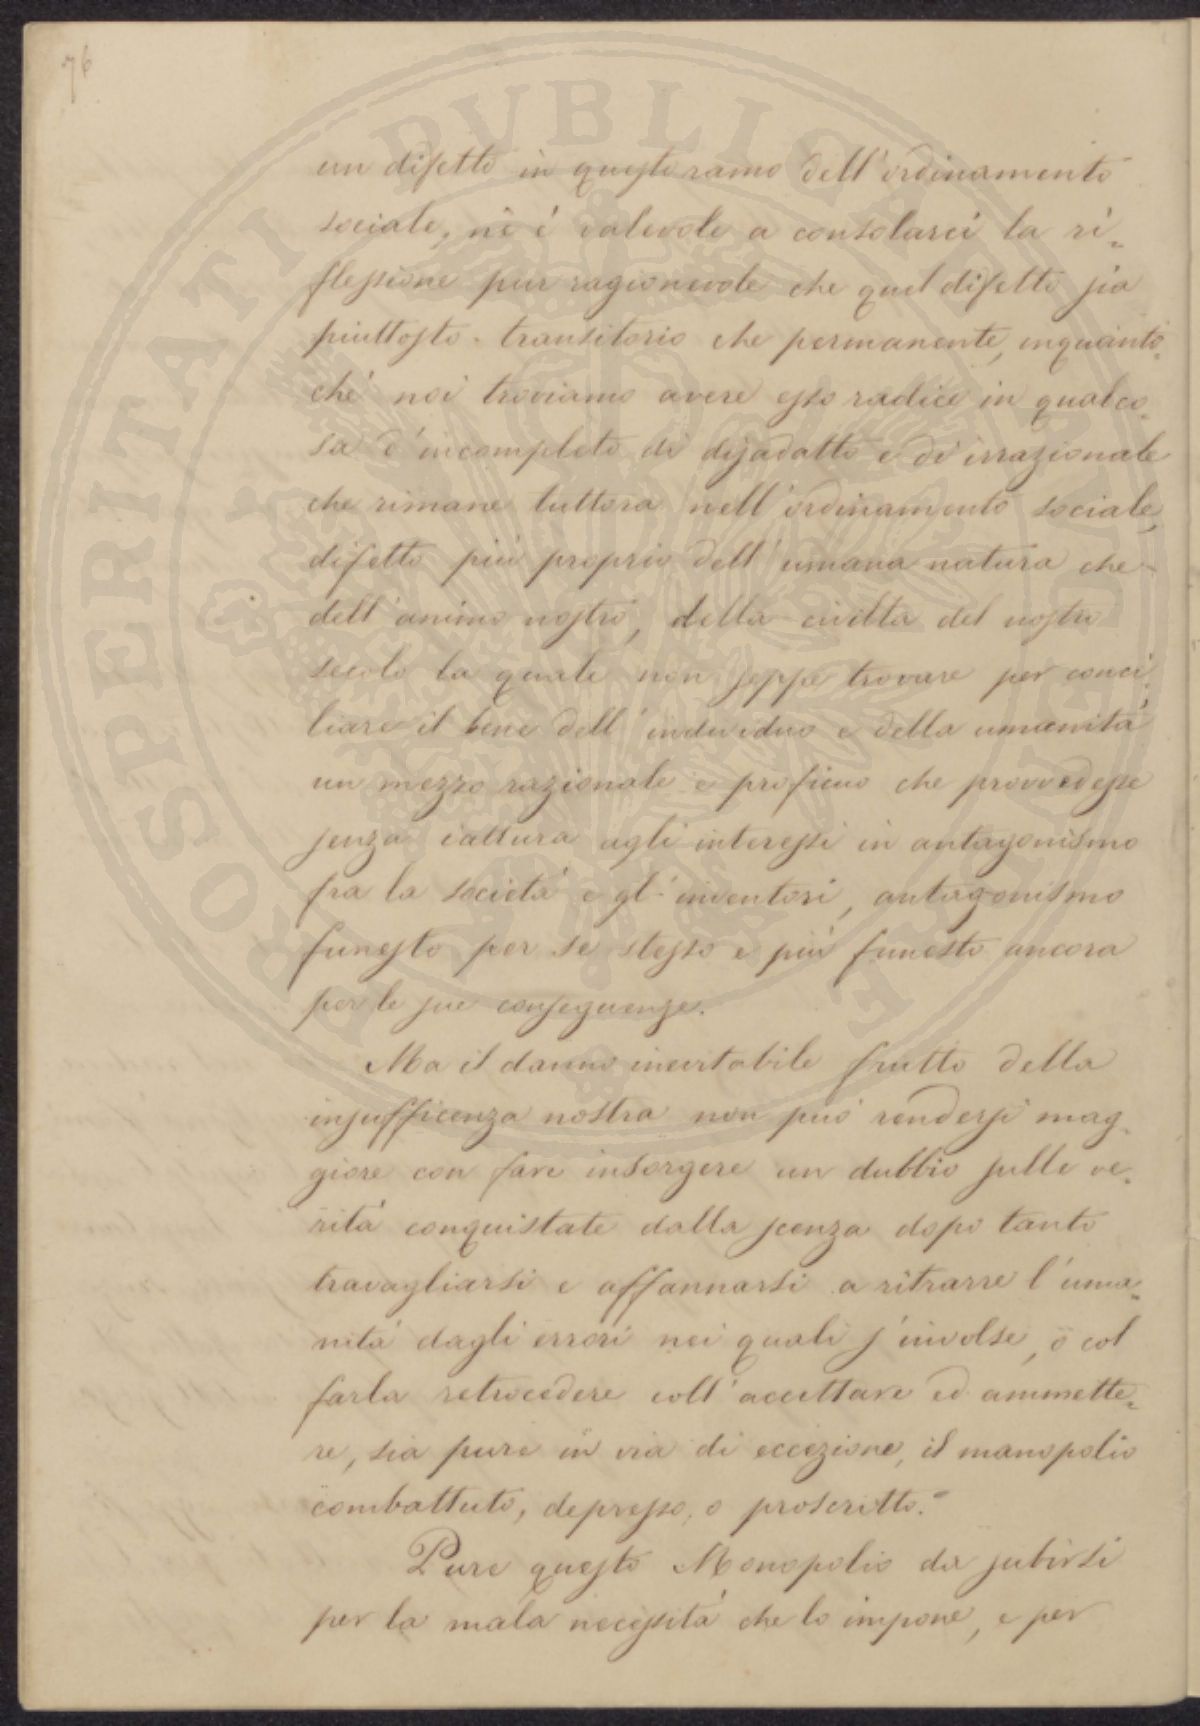 76
un difetto in questo ramo dell'ordinamento
sociale, nè è valevole a consolarci la ri-
flessione pur ragionevole che quel difetto sia
piuttosto transitorio che permanente, inquanto-
chè noi troviamo avere esso radice in qualco-
sa d'incompleto di disadatto e di irrazionale
che rimane tuttora nell'ordinamento sociale,
difetto più proprio dell'umana natura che
dell'animo nostro, della civiltà del nostro
secolo la quale non seppe trovare per conci-
liare il bene dell'individuo e della umanità
un mezzo razionale e proficuo che provvedesse
senza iattura agli interessi in antagonismo
fra la società e gl'inventori, antagonismo
funesto per se stesso e più funesto ancora
per le sue conseguenze.
Ma il danno inevitabile frutto della
insufficenza nostra non può rendersi mag-
giore con fare insorgere un dubbio sulle ve-
rità conquistate dalla scenza dopo tanto
travagliarsi e affannarsi a ritrarre l'uma-
nità dagli errori nei quali s'involse, o col
farla retrocedere coll'accettare ed ammette-
re, sia pure in via di eccezione, il manopolio
combattuto, depresso, o proscritto.
Pure questo Monopolio da subirsi
per la mala necessità che lo impone, e per
PROSPERITATI PUBLICAE